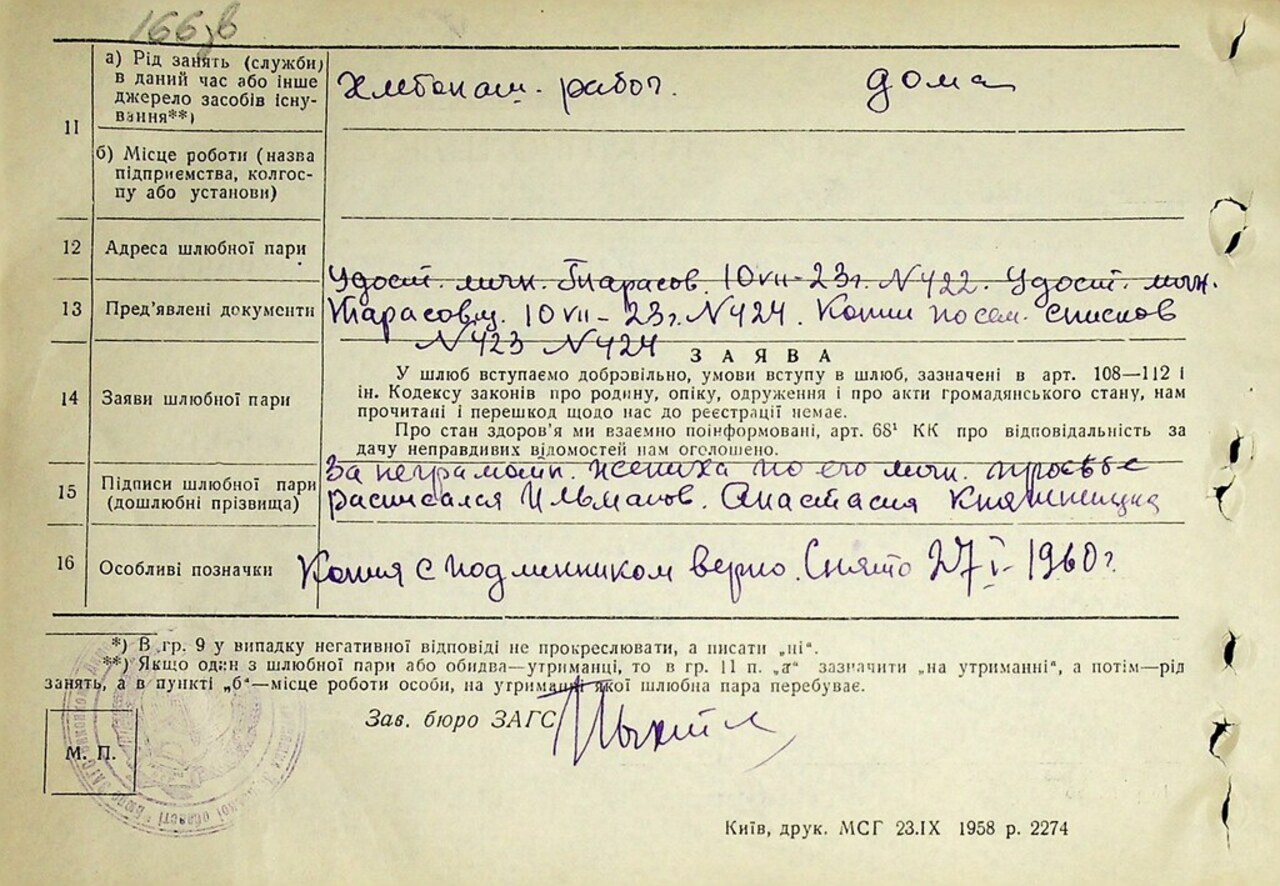 166зв
11
а) Рід занять (служби)
в даний час або інше
джерело засобів існу-
вання**)
Хлебопаш. работ.
дома
б) Місце роботи (назва
підприємства, колгос-
пу або установи)
12
Адреса шлюбної пари
13
Пред’явлені документи
Удост. личн. Тарасов. 10 VII - 23 г. N 422. Удост. личн.
Тарасовц. 10 VII - 23 г. N 424. Копии посем. списков
N 423 N 424
ЗАЯВА
14
Заяви шлюбної пари
У шлюб вступаємо добровільно, умови вступу в шлюб, зазначені в арт. 108—112 і
ін. Кодексу законів про родину, опіку, одруження і про акти громадянського стану, нам
прочитані і перешкод щодо нас до реєстрації немає.
Про стан здоров’я ми взаємно поінформовані, арт. 68¹ КК про відповідальність за
дачу неправдивих відомостей нам оголошено.
15
Підписи шлюбної пари
(дошлюбні прізвища)
За неграмотн. жениха по его личн. просьбе
расписался Анастасия
16
Особливі позначки
Копия с подлинником верно. Снято 27 I - 1960 г.
*) В гр. 9 у випадку негативної відповіді не прокреслювати, а писати „ні“.
**) Якщо один з шлюбної пари або обидва—утриманці, то в гр. 11 п. „а“ зазначити „на утриманні“, а потім—рід
занять, а в пункті „б“—місце роботи особи, на утриманні якої шлюбна пара перебуває.
Зав. бюро ЗАГС
М. П.
Київ, друк. МСГ 23.IX 1958 р. 2274